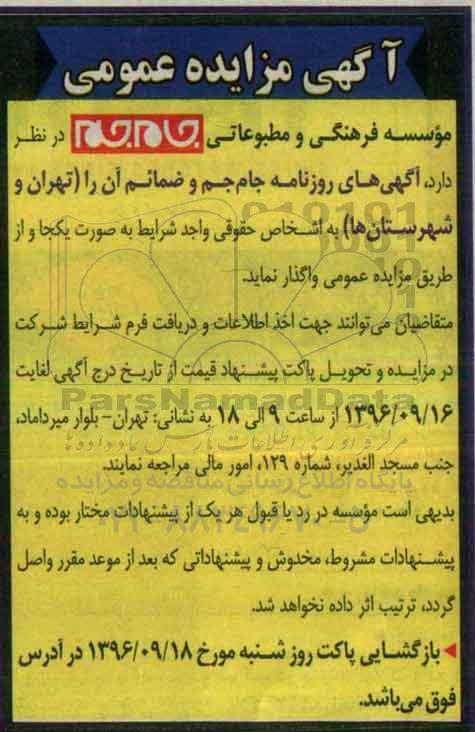 آگهی مزایده عمومی
مؤسسه فرهنگی و مطبوعاتی جام‌جم در نظر
دارد، آگهی‌های روزنامه جام‌جم و ضمائم آن را (تهران و
شهرستان‌ها) به اشخاص حقوقی واجد شرایط به صورت یکجا و از
طریق مزایده عمومی واگذار نماید.
متقاضیان می‌توانند جهت اخذ اطلاعات و دریافت فرم شرایط شرکت
در مزایده و تحویل پاکت پیشنهاد قیمت از تاریخ درج آگهی لغایت
ParsNamadData
۱۳۹۶/۰۹/۱۶ از ساعت ۹ الی ۱۸ به نشانی: تهران- بلوار میرداماد،
جنب مسجد الغدیر، شماره ۱۲۹، امور مالی مراجعه نمایند.
پایگاه اطلاع رسانی مناقصه و مزایده
بدیهی است مؤسسه در رد یا قبول هر یک از پیشنهادات مختار بوده و به
پیشنهادات مشروط، مخدوش و پیشنهاداتی که بعد از موعد مقرر واصل
گردد، ترتیب اثر داده نخواهد شد.
◀ بازگشایی پاکت روز شنبه مورخ ۱۳۹۶/۰۹/۱۸ در آدرس
فوق می‌باشد.